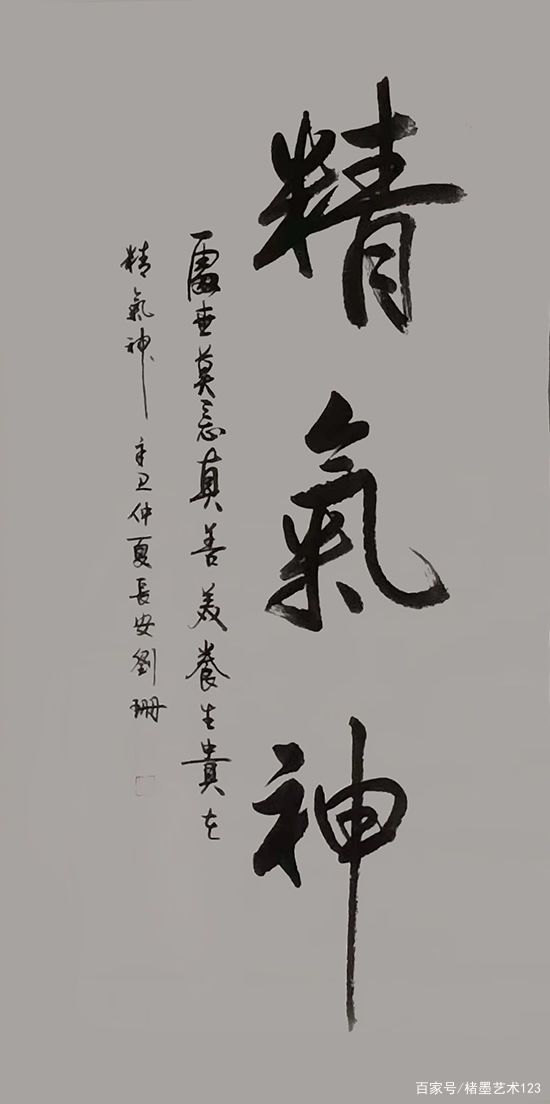 精氣神
處世莫忘真善美養生貴在
精氣神 辛丑仲夏長安劉珊
百家号/楮墨艺术123